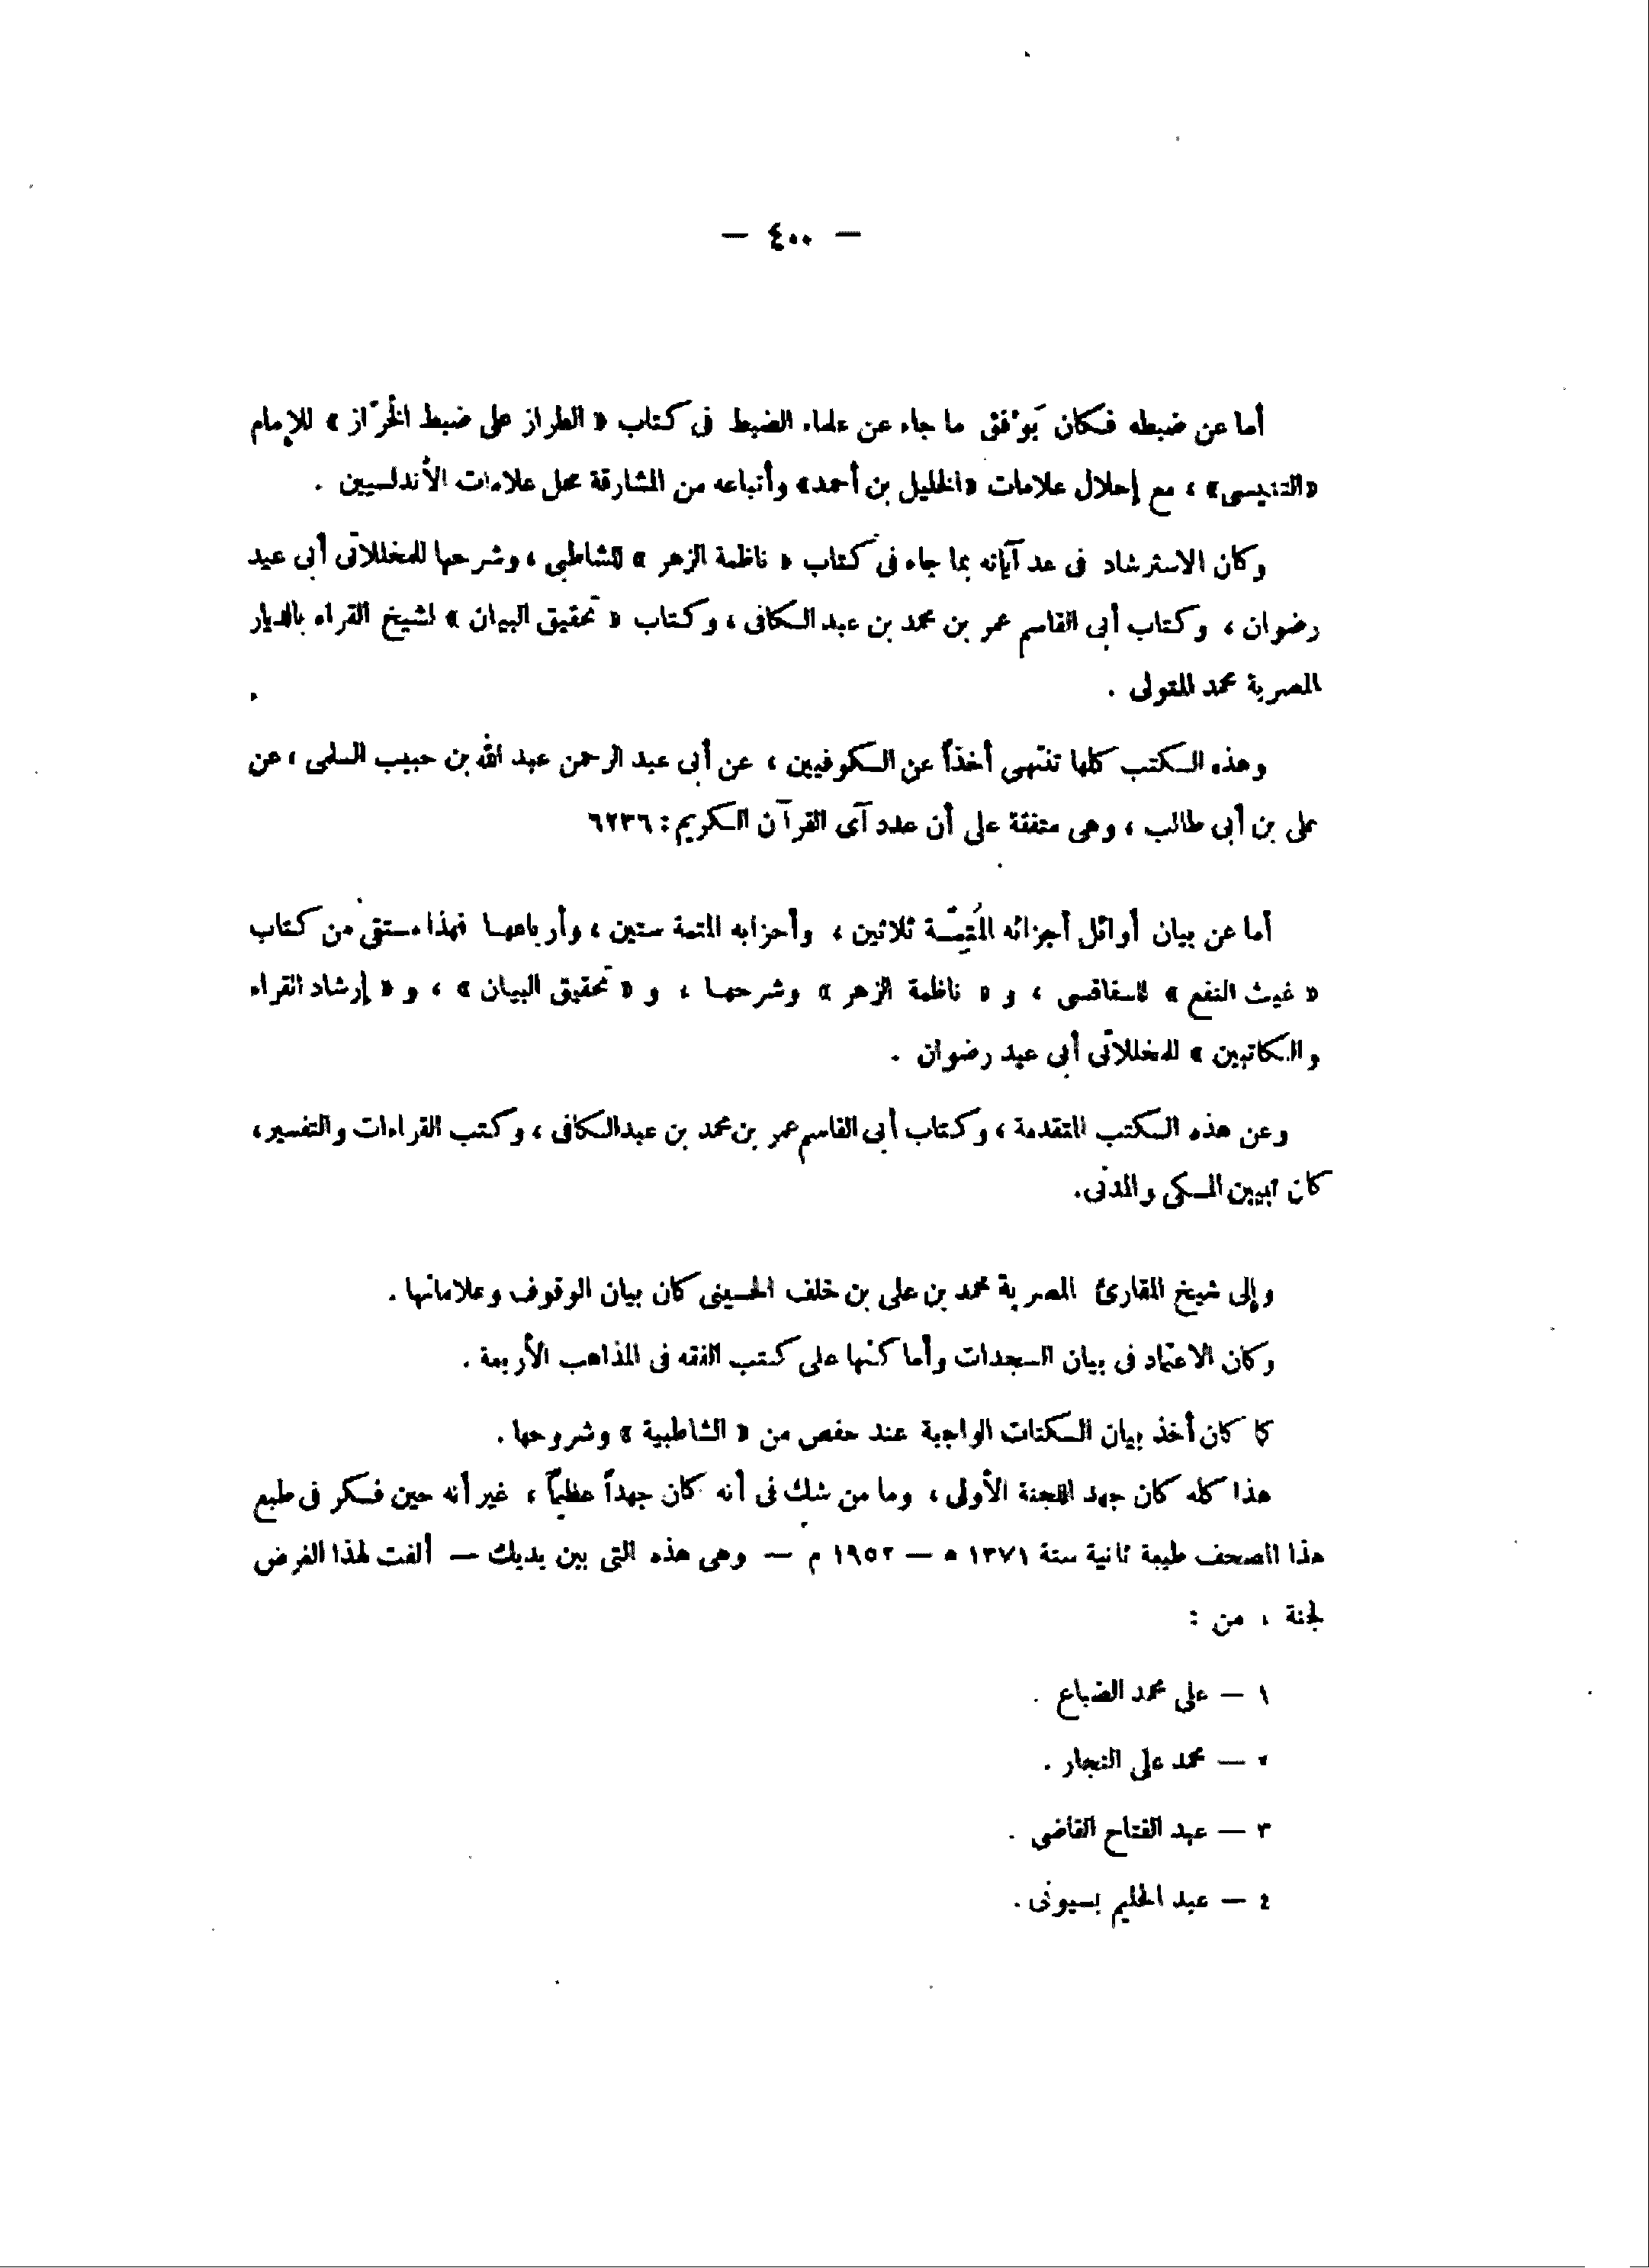 — ٤٠٠ —
أما عن ضبطه فكان يوافق ما جاء عن علماء الضبط فى كتاب « الطراز على ضبط الخرّاز » للإمام
«التنيسى» ، مع إحلال علامات «الخليل بن أحمد» وأتباعه من المشارقة محل علامات الأندلسيين .
وكان الاسترشاد فى عد آياته بما جاء فى كتاب « ناظمة الزهر » للشاطبى ، وشرحها للمخللاتى أبى عيد
رضوان ، وكتاب أبى القاسم عمر بن محمد بن عبد الكافى ، وكتاب « تحقيق البيان » لشيخ القراء بالديار
المصرية محمد المتولى .
وهذه الكتب كلها تنتهى أخذاً عن الكوفيين ، عن أبى عبد الرحمن عبد الله بن حبيب السلمى ، عن
على بن أبى طالب ، وهى متفقة على أن عدد آى القرآن الكريم : ٦٢٣٦
أما عن بيان أوائل أجزائه المُتِمّة ثلاثين ، وأحزابه المتمة ستين ، وأرباعها فهذا مستقى من كتاب
« غيث النفع » للسفاقسى ، و « ناظمة الزهر » وشرحها ، و « تحقيق البيان » ، و « إرشاد القراء
والكاتبين » للمخللاتى أبى عيد رضوان .
وعن هذه الكتب المتقدمة ، وكتاب أبى القاسم عمر بن محمد بن عبدالكافى ، وكتب القراءات والتفسير ،
كان تبيين المكى والمدنى .
وإلى شيخ المقارئ المصرية محمد بن على بن خلف الحسينى كان بيان الوقوف وعلاماتها .
وكان الاعتماد فى بيان السجدات وأماكنها على كتب الفقه فى المذاهب الأربعة .
كما كان أخذ بيان السكتات الواجبة عند حفص من « الشاطبية » وشروحها .
هذا كله كان جهد اللجنة الأولى ، وما من شك فى أنه كان جهداً عظيماً ، غير أنه حين فكر فى طبع
هذا المصحف طبعة ثانية سنة ١٣٧١ ه — ١٩٥٢ م — وهى هذه التى بين يديك — ألفت لهذا الغرض
لجنة ، من :
١ — على محمد الضباع .
٢ — محمد على النجار .
٣ — عبد الفتاح القاضى .
٤ — عبد الحليم بسيونى .